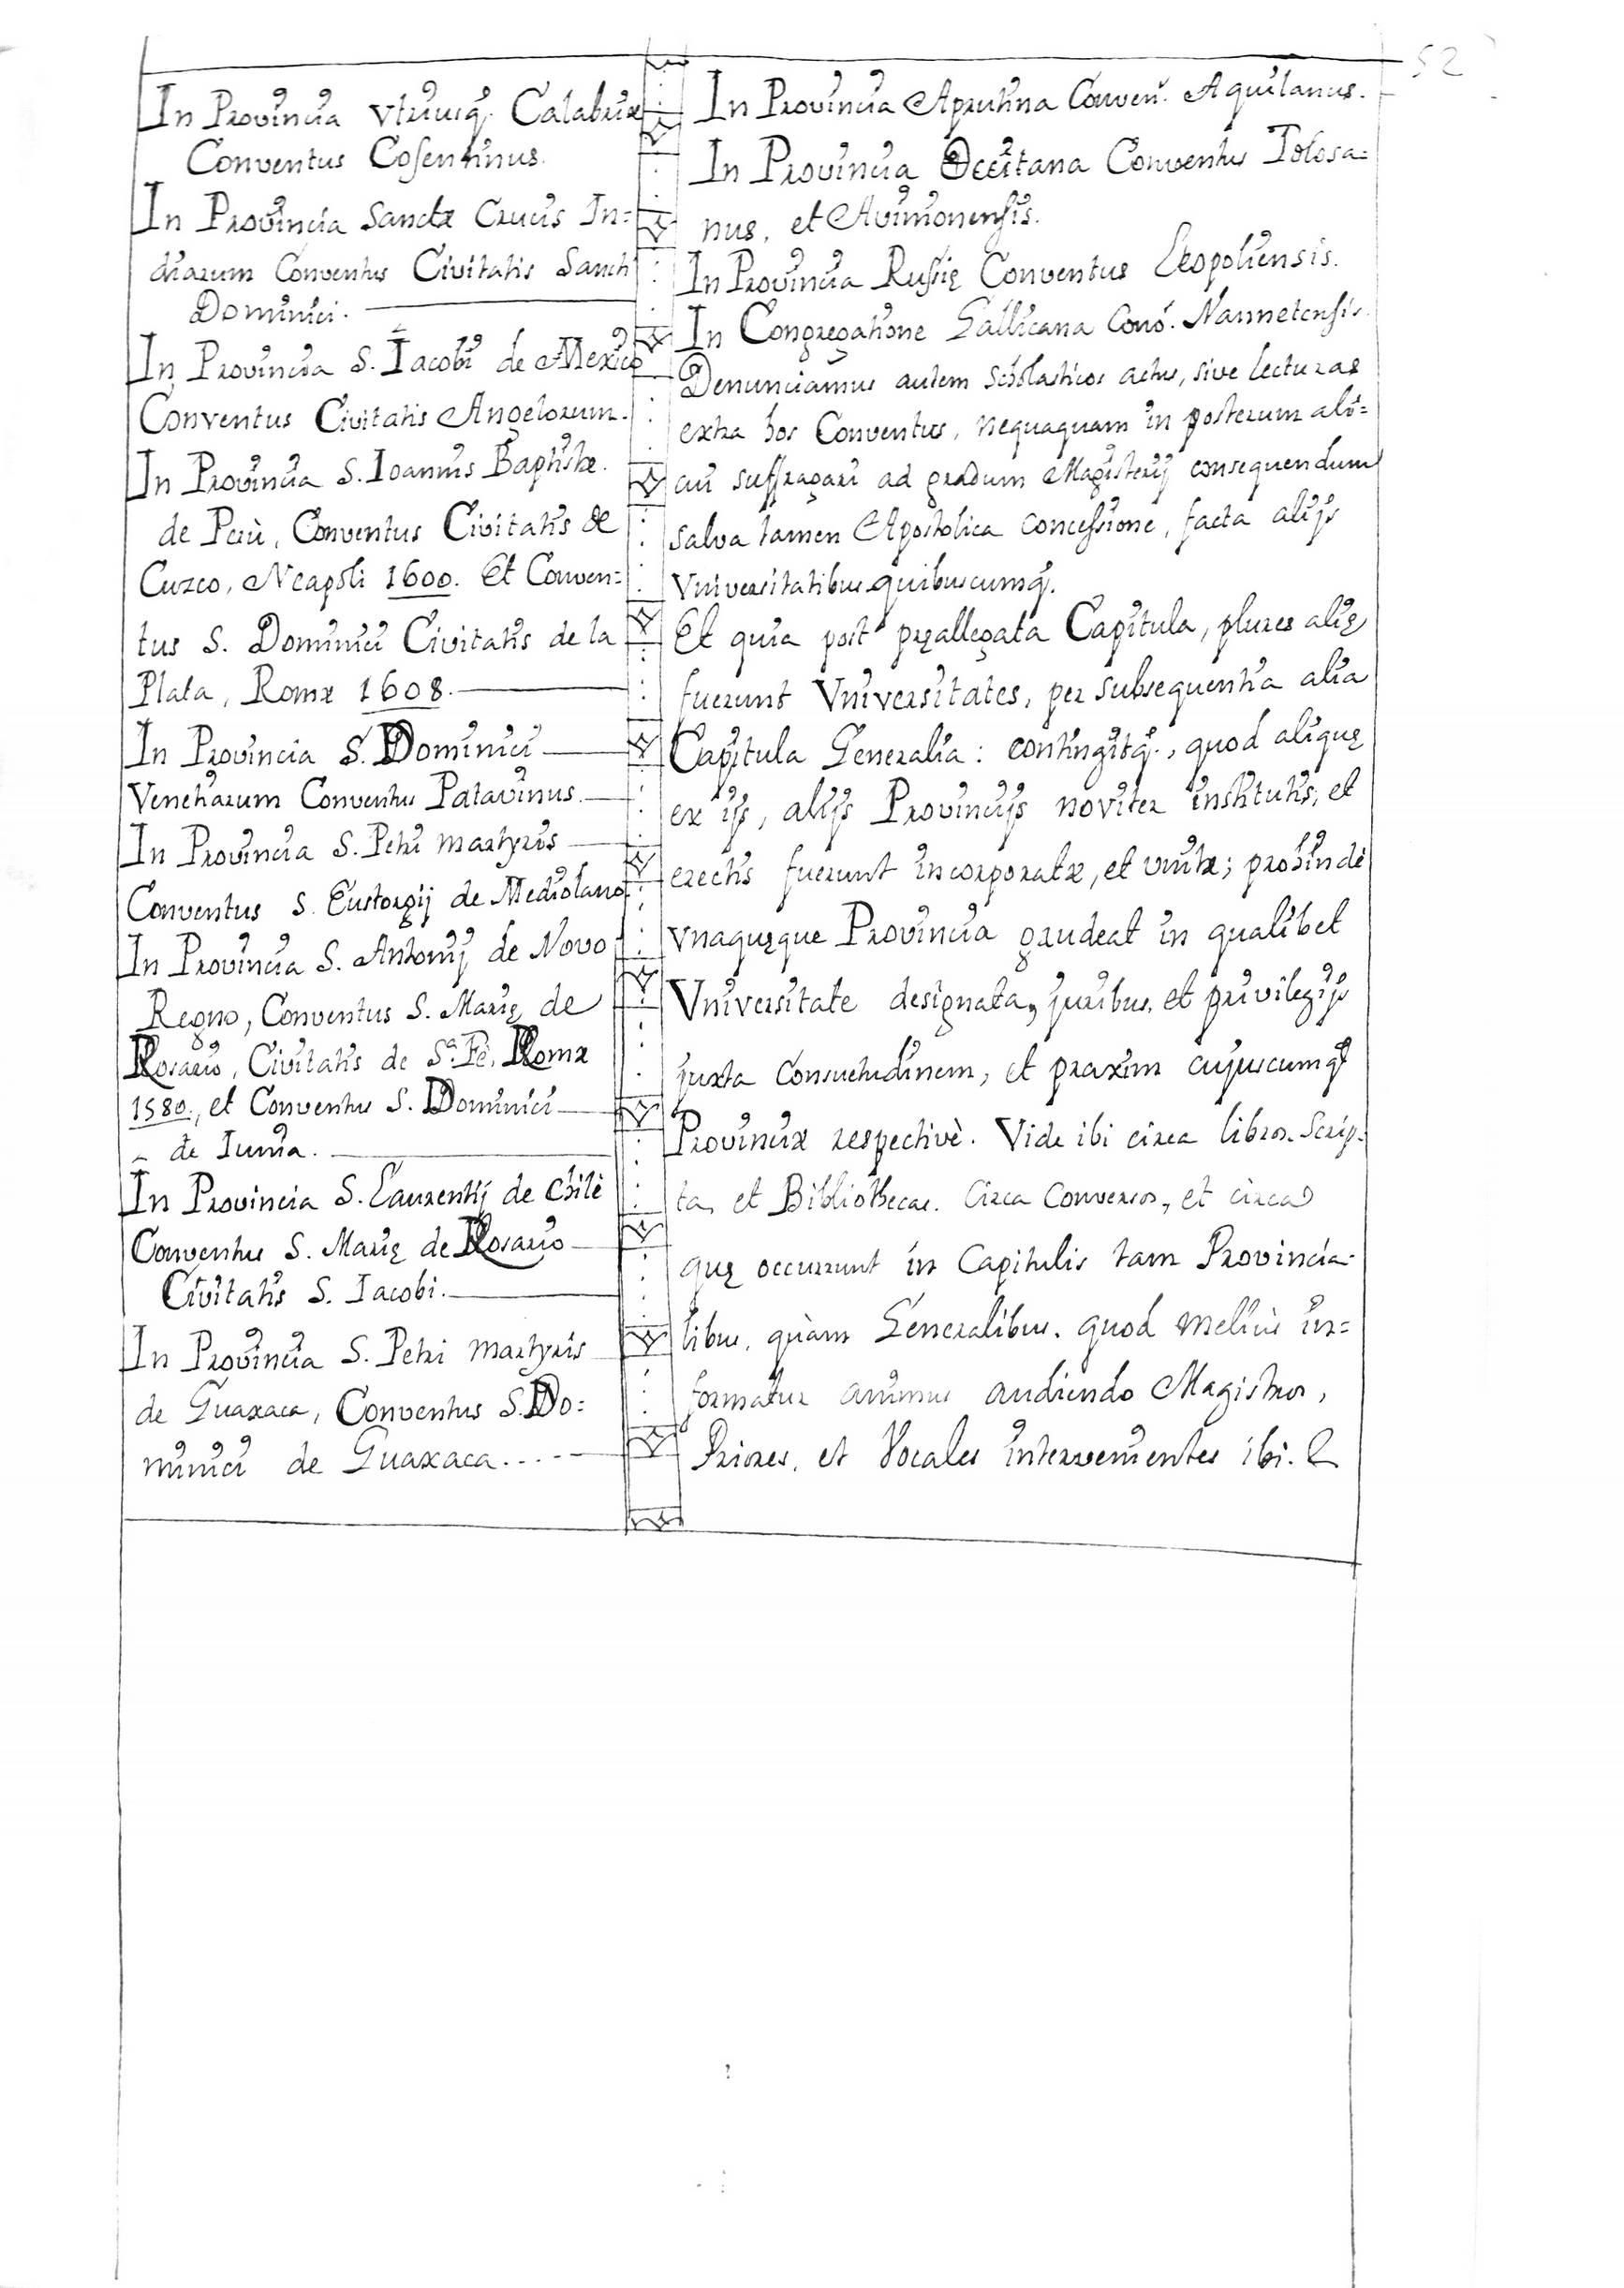 52
In Provincia Vtriusq. Calabriæ
Conventus Cosentinus.
In Provincia Sanctæ Crucis In=
diarum Conventus Civitatis Sancti
Dominici.
In Provincia S. Iacobi de Mexico
Conventus Civitatis Angelorum.
In Provincia S. Ioannis Baptistæ.
de Perù, Conventus Civitatis de
Cuzco, Neapoli 1600. Et Conven=
tus S. Dominici Civitatis de la
Plata, Romæ 1608.
In Provincia S. Dominici
Venetiarum Conventus Patavinus.
In Provincia S. Petri Martyris
Conventus S. Eustorgij de Mediolano
In Provincia S. Antonij de Novo
Regno, Conventus S. Marię de
Rosario, Civitatis de Sa. Fè, Romæ
1580., et Conventus S. Dominici
de Iunia.
In Provincia S. Laurentij de Chilè
Conventus S. Marię de Rosario
Civitatis S. Iacobi.
In Provincia S. Petri Martyris
de Guaxaca, Conventus S. Do=
minici de Guaxaca....
In Provincia Aprutina Conven. Aquilanus.
In Provincia Occitana Conventus Tolosa=
nus, et Avinionensis.
In Provincia Russię Conventus Leopoliensis.
In Congregatione Gallicana Conv. Nannetensis.
Denunciamus autem Scholasticos actus, sive lecturas
extra hos Conventus, nequaquam in posterum ali=
cui suffragari ad gradum Magisterij consequendum
salva tamen Apostolica concessione, facta alijs
Vniversitatibus quibuscumq.
Et quia post pręallegata Capitula, plures alię
fuerunt Vniversitates, per subsequentia alia
Capitula Generalia: contingitq., quod aliquę
ex ijs, alijs Provincijs noviter institutis, et
erectis fuerunt incorporatæ, et unitæ; prohindè
Vnaquęque Provincia gaudeat in qualibet
Vniversitate designata, juribus, et privilegijs
juxta Consuetudinem, et praxim cujuscumq
Provinciæ respectivè. Vide ibi circa libros. Scrip.
ta, et Bibliothecas. Circa Conversos, et circa
quę occurrunt in Capitulis tam Provincia=
libus, quàm Generalibus. quod meliùs in=
formatur animus audiendo Magistros,
Priores, et Vocales intervenientes ibi.